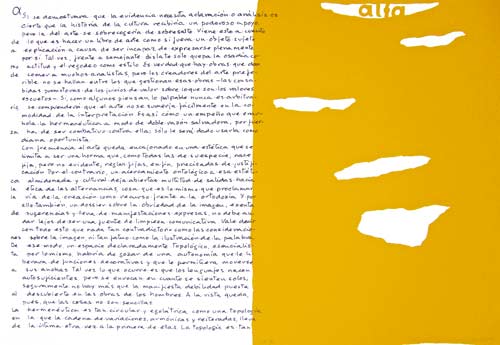 α Si se demostrara que la evidencia necesita aclaración o análisis es
cierto que la historia de la cultura recibiría un poderoso apoyo
pero la del arte se sobrecogería de sobresalto Viene esto a cuento
de lo que es hacer un libro de arte como si fuera un objeto sujeto
a explicación a causa de ser incapaz de expresarse plenamente
por sí Tal vez frente a semejante dislate solo quepa la
actitud y el regodeo como estilo Es verdad que hay obras que han
de comer a muchos analistas, pero los creadores del arte
no se hallan entre los que gestionan esas obras
de los juicios de valor sobre lo que son los valores
escuetos Si, como algunos piensan lo palpable nunca es
se comprenderá que el arte no se sumerja fácilmente en la
modidad de la interpretación Es así como un empeño que
la hermenéutica a modo de doble razón salvadora, por
za ha de ser combativo contra ella; sólo le será dado usarla como
diana oportunista
Con frecuencia el arte queda encajonado en una estética que se
limita a ser una norma, que, como todas las de su especie, nace
fija, pero no evidente, reglas fijas, en fin, precitadas de justifi
cación Por el contrario, un acercamiento ontológico a esa estéti
ca almacenada y cultural deja abiertas multitud de salidas hacia
la ética de las alternancias, cosa que es lo mismo que proclamar
la vía de la creación como recurso frente a la ortodoxia Y por
ello también, un dossier sobre la obviedad de la imagen, exento
de sugerencias y lleno de manifestaciones expresas, no debe
dar lejos de ser una fuente de limpieza comunicativa Vale decir
con todo esto que nada tan contradictorio como las consideracio
nes sobre la imagen ni tan jatuo como la ilustración de la palabra
De ese modo un espacio declaradamente topológico, esencialis
ta por lo mismo, habría de gozar de una autonomía que le li
berara de funciones decorativas y que le permitiera, moverse
a sus anchas Tal vez lo que ocurre es que los lenguajes nacen
autosuficientes pero se evocan en cuanto se sienten solos,
seguramente no hay más que la manifiesta debilidad puesta
al descubierto en las obras de los hombres A la vista queda,
pues, que las cosas no son sencillas
La hermenéutica es tan circular y egolátrica como una topología
en la que la cadena de variaciones, armónicas y reiteradas, lleva
de la última otra vez a la primera de ellas La topología es tan
alfa